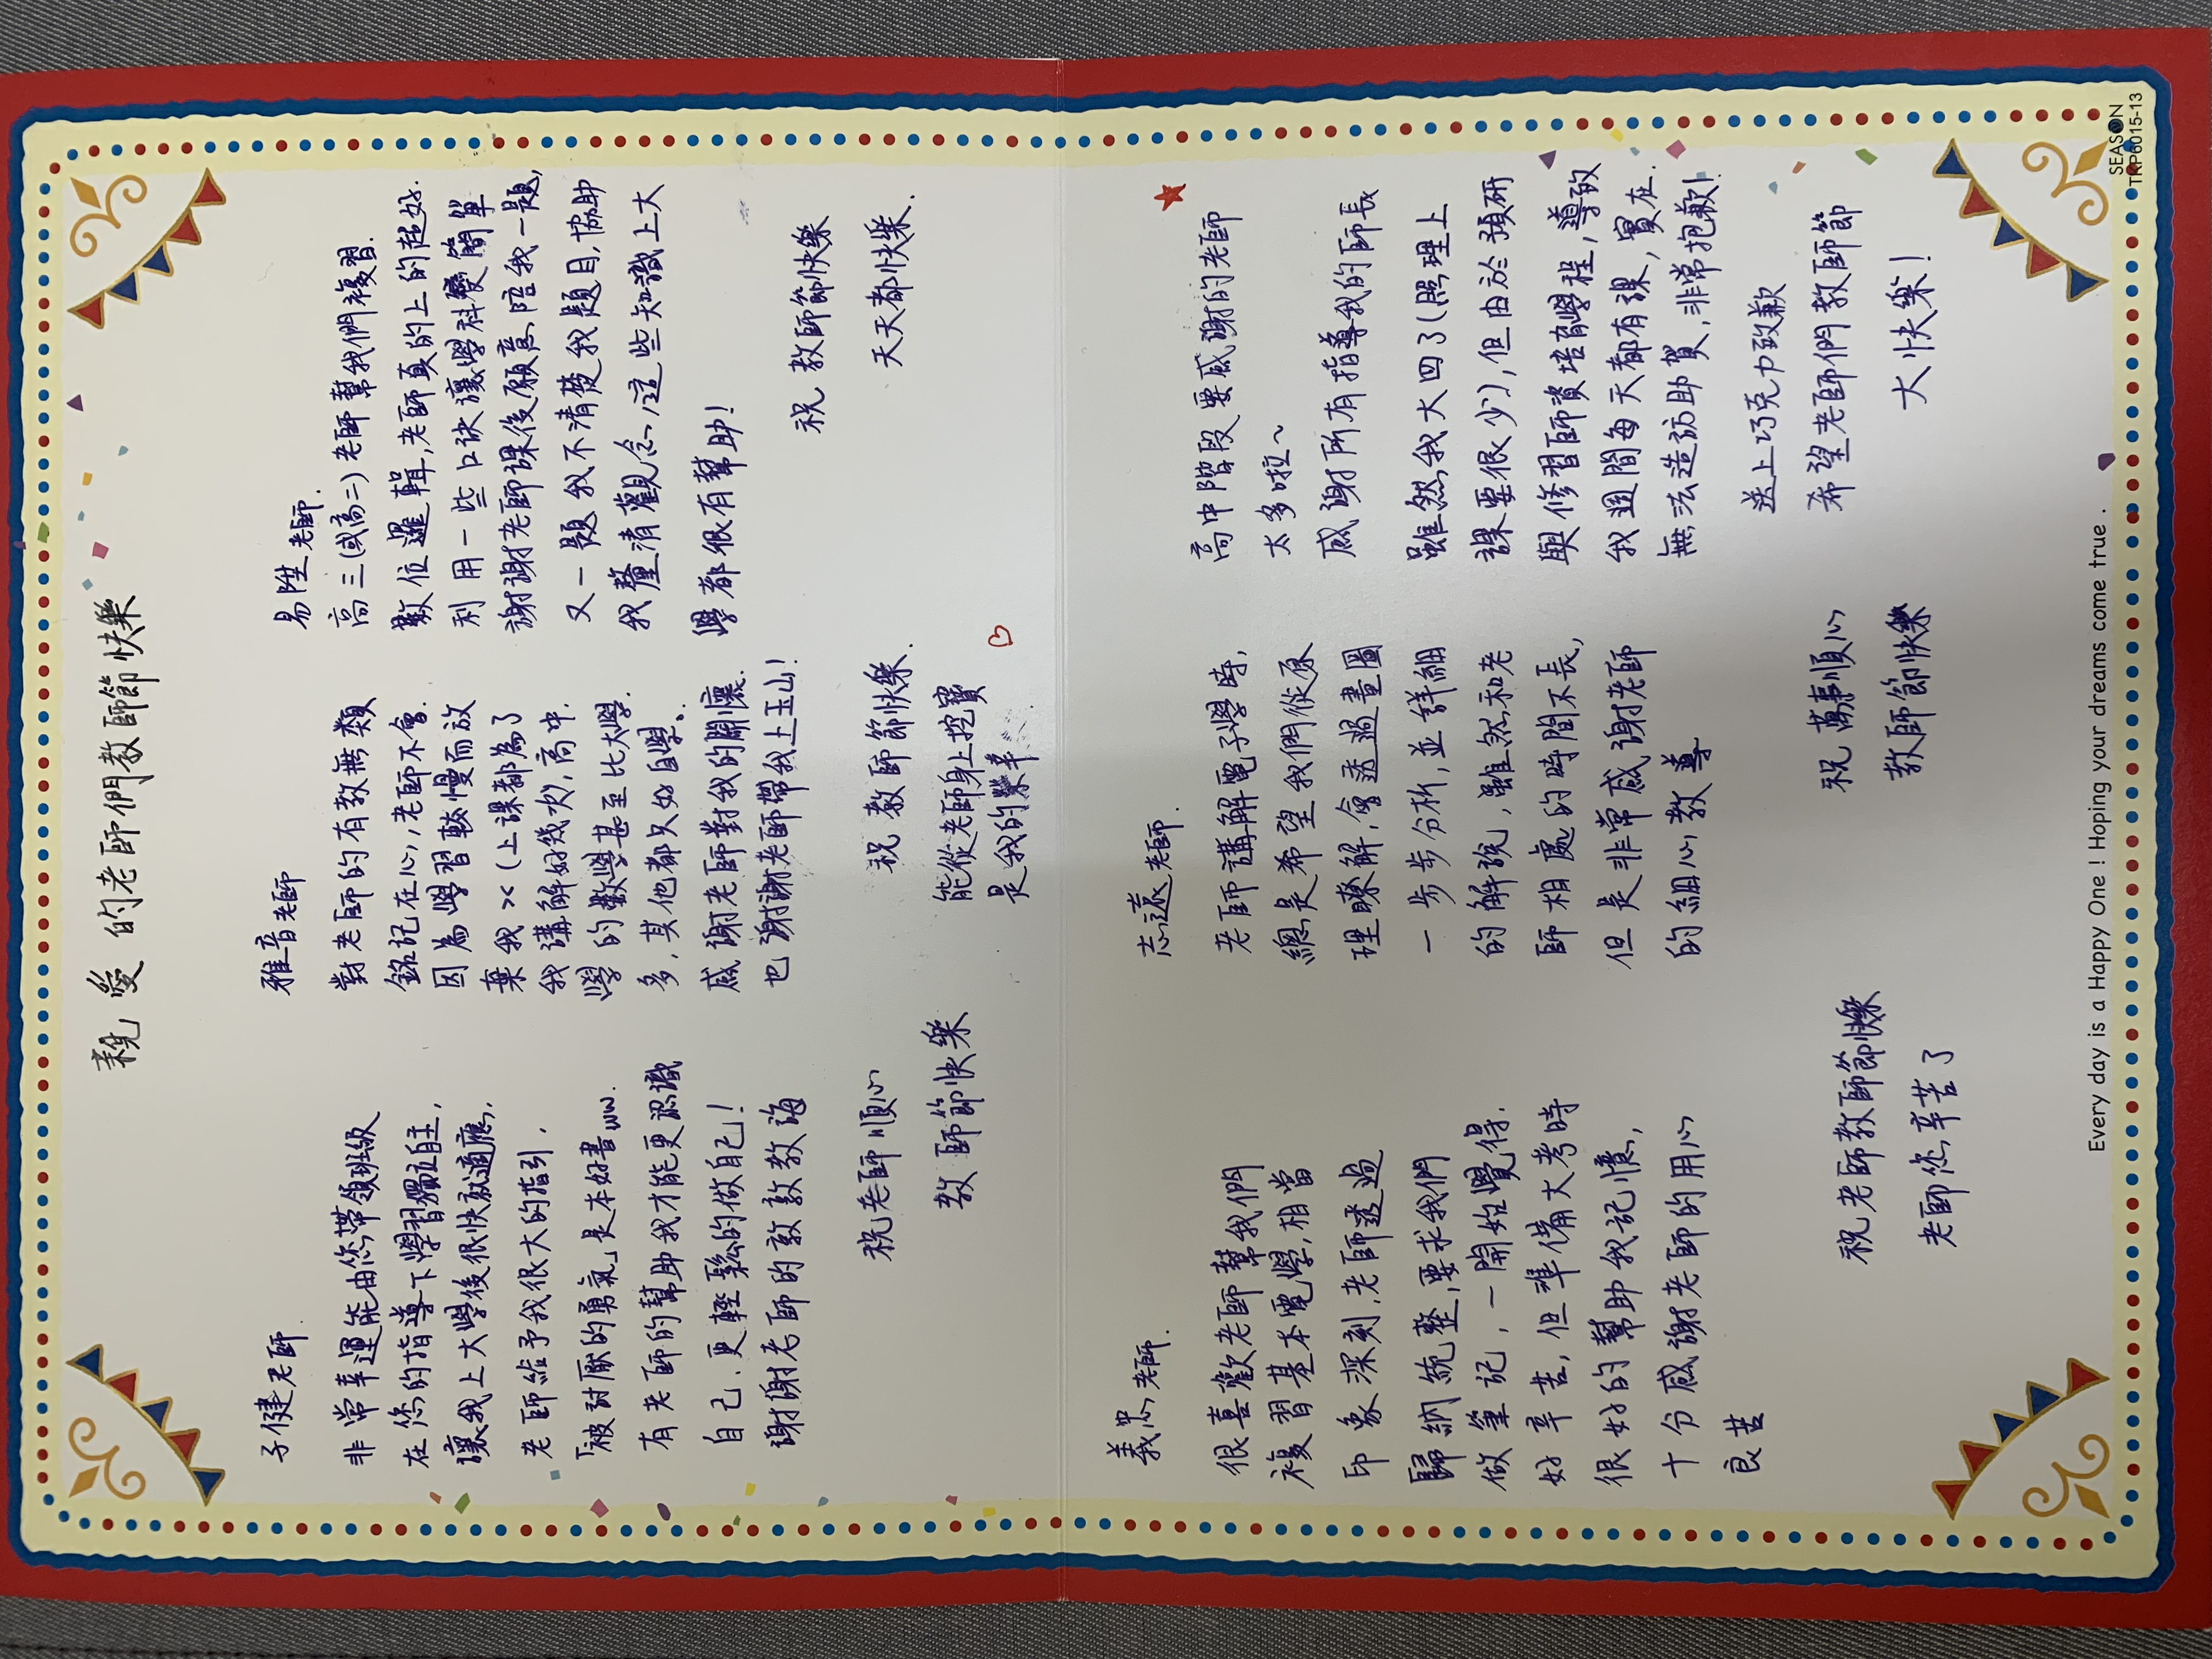 親愛的老師們教師節快樂
子健老師.
非常幸運能由您帶領班級
在您的指導下學習獨立自主,
讓我上大學後很快就適應,
老師給予我很大的指引,
「被討厭的勇氣」是本好書ww.
有老師的幫助我才能更認識
自己,更輕鬆的做自己!
謝謝老師的敦敦教誨
祝老師順心
教師節快樂
雅音老師
對老師的有教無類
銘記在心,老師不會.
因為學習較慢而放
棄我><(上課都為了
我講解好幾次),高中.
學的數學甚至比大學.
多,其他都只好自學。
感謝老師對我的關懷.
也謝謝老師帶我上玉山!
祝 教師節快樂.
能從老師身上挖寶
是我的榮幸
易陞老師.
高三(或高二)老師幫我們複習.
數位邏輯,老師真的上的超好.
利用一些口訣讓學科變簡單
謝謝老師課後願意陪我一題,
又一題我不清楚我題目,協助
我釐清觀念,這些知識上大
學都很有幫助!
祝 教師節快樂
天天都快樂.
義忠老師.
很喜歡老師幫我們
複習基本電學,相當
印象深刻,老師透過
歸納統整,要求我們
做筆記,一開始覺得.
好辛苦,但準備大考時
很好的幫助我記憶,
十分感謝老師的用心
良苦
祝老師教師節快樂
老師您辛苦了
志遠老師.
老師講解電子學時,
總是希望我們從原
理瞭解,會透過畫圖
一步步分析,並詳細
的解說,雖然和老
師相處的時間不長,
但是非常感謝老師
的細心教導
祝 萬事順心
教師節快樂
高中階段要感謝的老師
太多啦~
感謝所有指導我的師長
雖然我大四了(照理上
課要很少),但由於預研
與修習師資培育學程,導致
我週間每天都有課,實在.
無法造訪助賀,非常抱歉!
送上巧克力致歉
希望老師們教師節
大快樂!
Every day is a Happy One ! Hoping your dreams come true .
SEASON
TKP6015-13